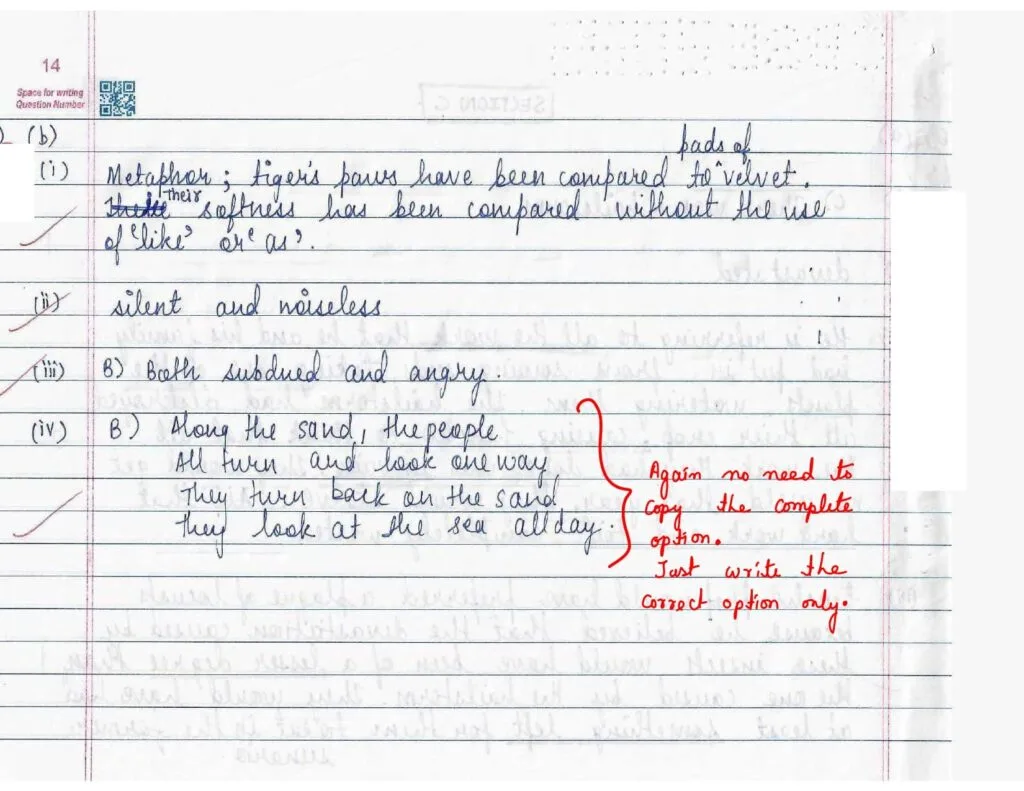 14
Space for writing
Question Number
(b)
pads of
(i) Metaphor; tiger's paws have been compared to ^ velvet.
Their softness has been compared without the use
of 'like' or 'as'.
(ii) silent and noiseless
(iii) B) Both subdued and angry.
(iv) B) Along the sand, the people
All turn and look one way
They turn back on the sand
They look at the sea all day.
Again no need to
copy the complete
option.
Just write the
correct option only.